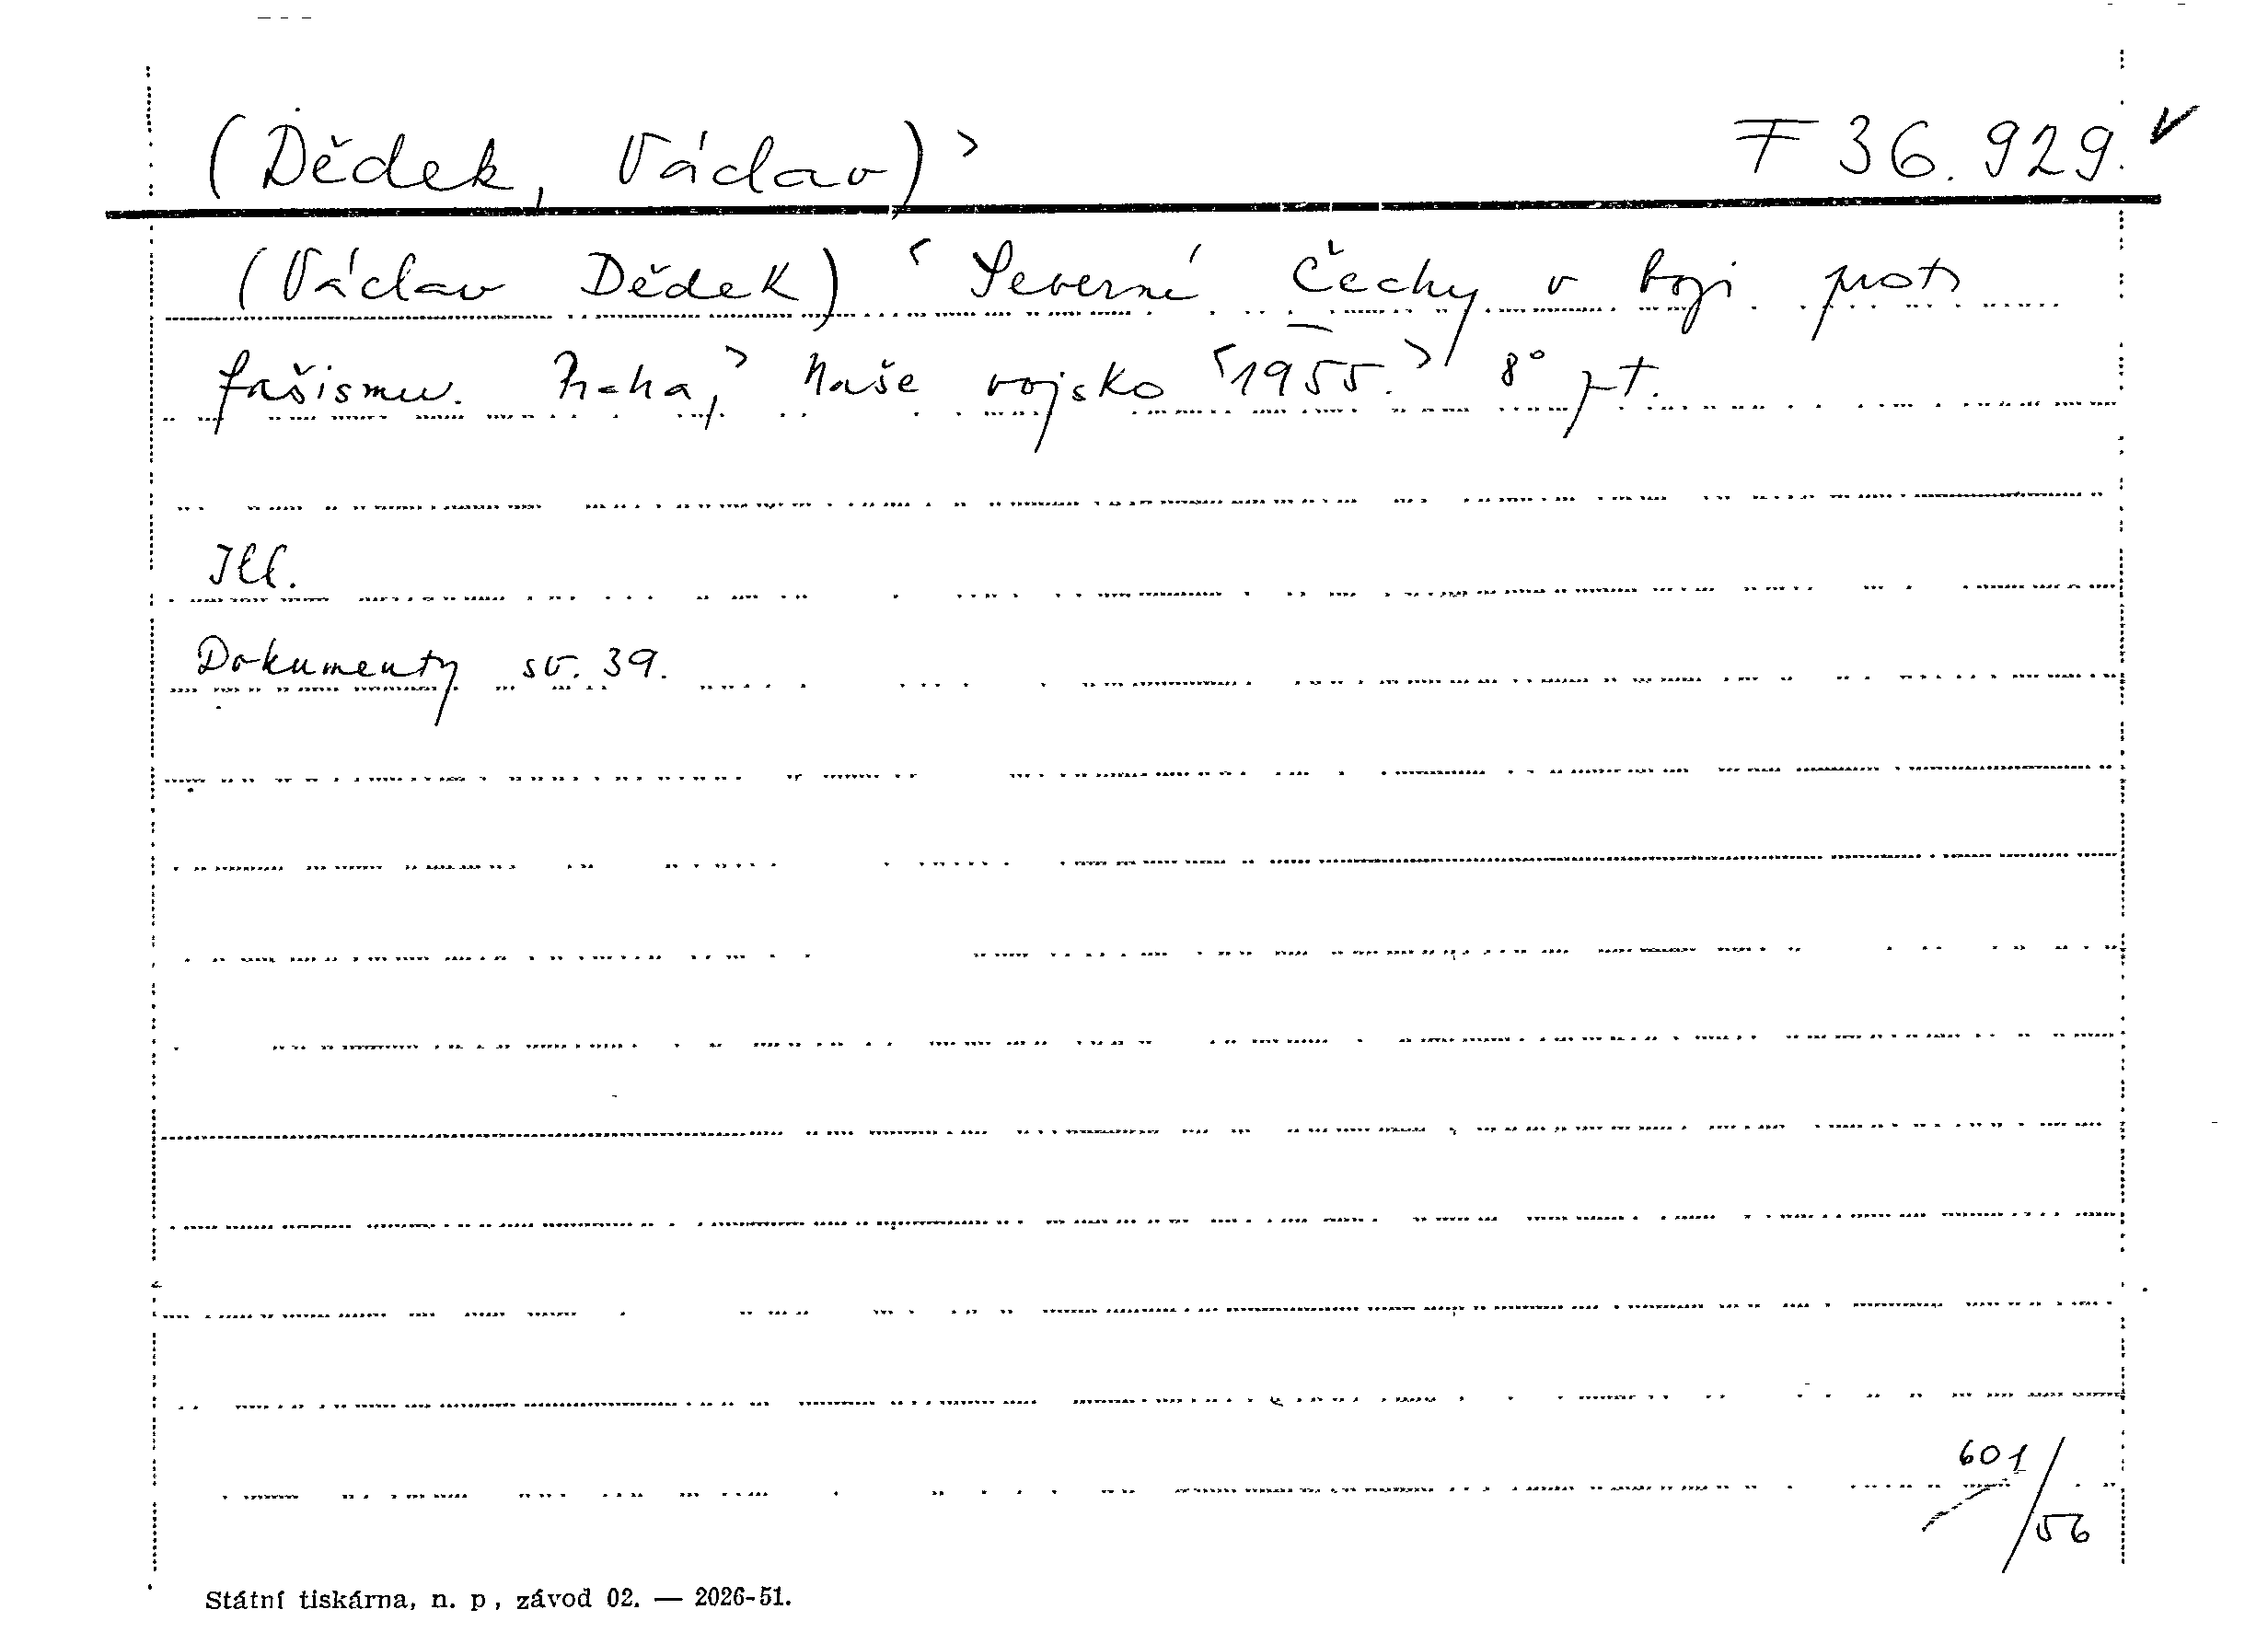 (Dědek, Václav)> F 36.929. ✓
(Václav Dědek) <Severní Čechy v boji proti
fašismu. Praha,> Naše vojsko <1955.> 8°
Ill.
Dokumenty sv. 39.
601/56
Státní tiskárna, n. p, závod 02. — 2026-51.